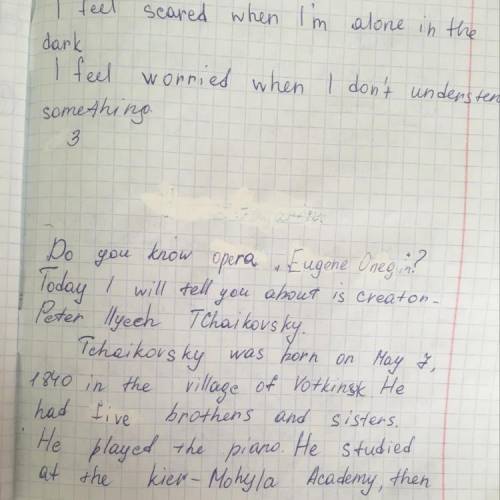 I feel scared when I'm alone in the
dark
I feel worried when I don't understen
something.
3
Do you know opera „Eugene Onegin?
Today I will tell you about is creator-
Peter Ilyech TChaikovsky.
Tchaikovsky was born on May 7,
1840 in the village of Votkinsk. He
had five brothers and sisters.
He played the piano. He studied
at the kier-Mohyla Academy, then